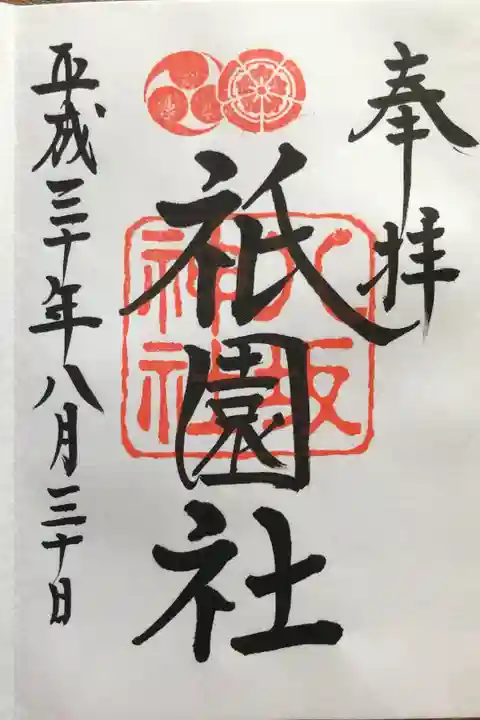 奉拝
祇園社
八坂
神社
平成三十年八月三十日